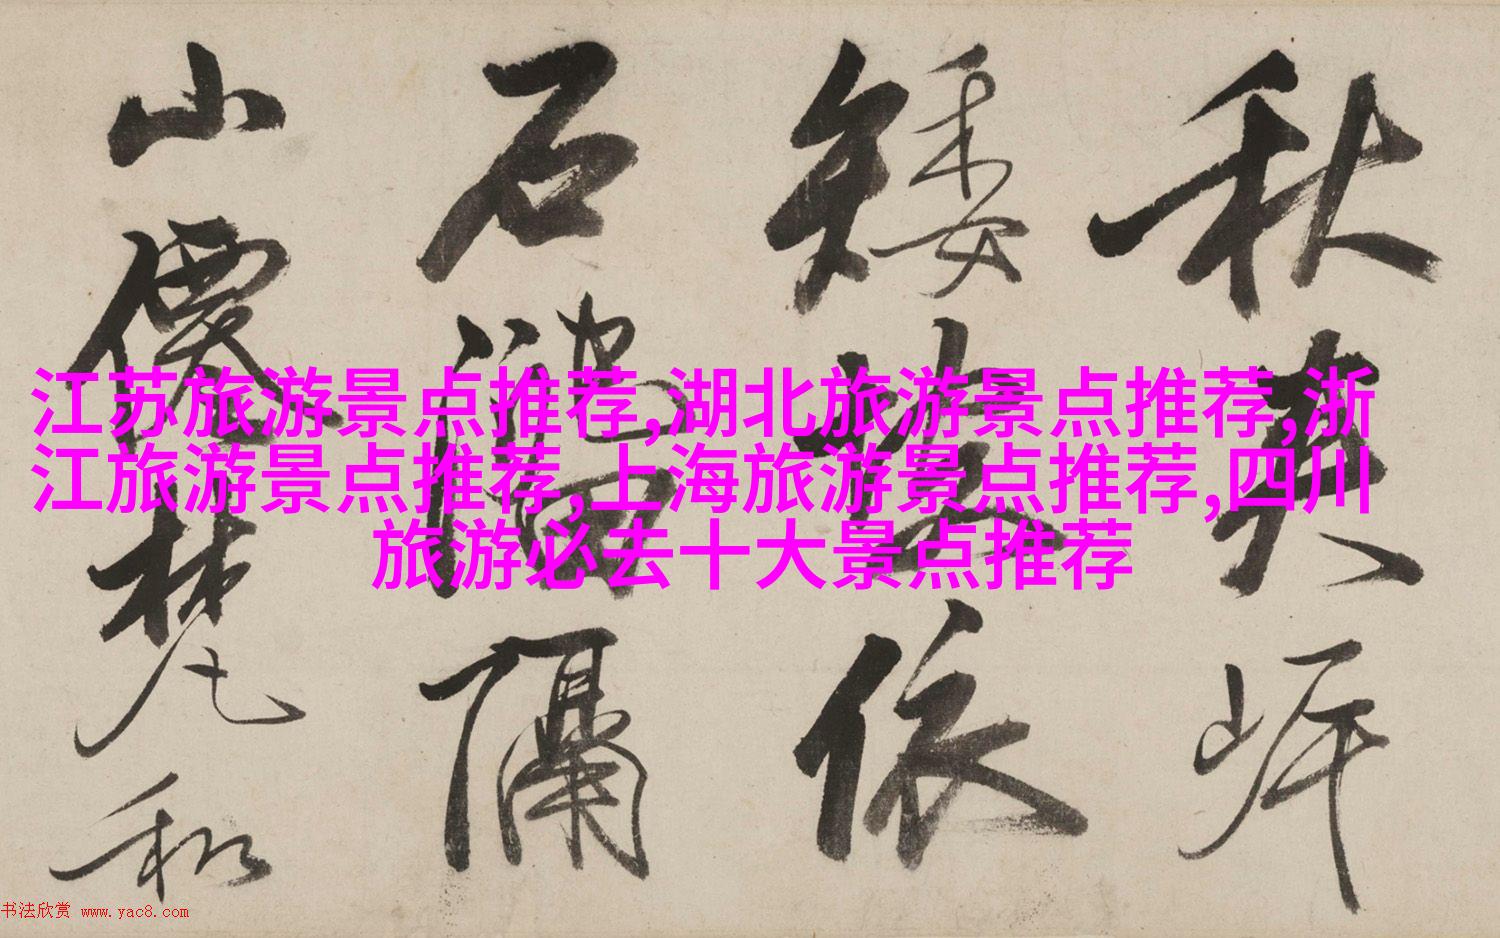 江苏旅游景点推荐,湖北旅游景点推荐,浙
江旅游景点推荐,上海旅游景点推荐,四川
旅游必去十大景点推荐
秋爽
矮依
石隔
山僊梵和
书法欣赏 www.yac8.com